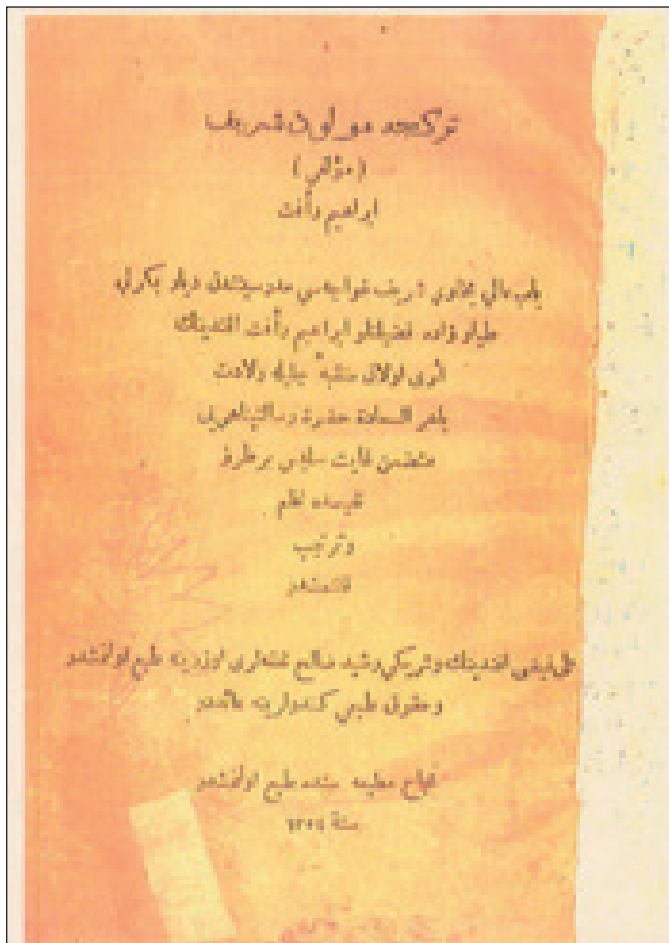 تركجه مولود شريف
(مؤلفى)
ابراهيم رأفت
باب عالي خواجه سي مدرسيندن ديار بكرلي
زاده فضيلتلو ابراهيم رأفت افندينك
اثرى اولان منقبهٔ جليله ولادت
باهر السعادة حضرت رسالتپناهيى
متضمن غايت سليس بر طرز
نفيسده نظم
وترتيب
قلنمشدر
فيضى افندينك وشريكى رشيد صالح نفقه لرى اوزرينه طبع اولنمشدر
وحقوق طبعى كندولرينه عائددر
مطبعه سنده طبع اولنمشدر
سنة